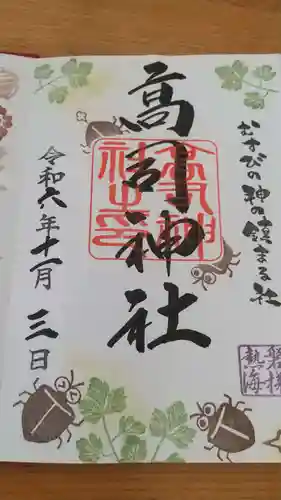 むすびの神の鎮まる社
磐梯
熱海
高司神社
高司神
社之印
令和六年十一月三日